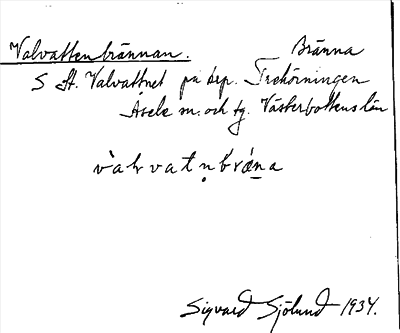 Valvattenbrännan. Bränna
S St. Valvattnet på krp. Trehörningen
Åsele sn. och tg. Västerbottens län
v̀alvatṇbrǽna
Sigvard Sjölund 1934.